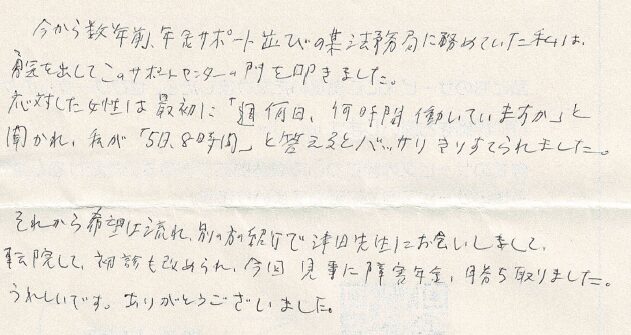 今から数年前、年金サポート並びの某法務局に務めていた私は、
勇気を出してこのサポートセンターの門を叩きました。
応対した女性は最初に「週何日、何時間働いていますか」と
聞かれ、私が「5日、8時間」と答えるとバッサリきりすてられました。
それから希望は流れ、別の方の紹介で津田先生にお会いしまして、
転院して、初診も改められ、今回見事に障害年金、勝ち取りました。
うれしいです。ありがとうございました。